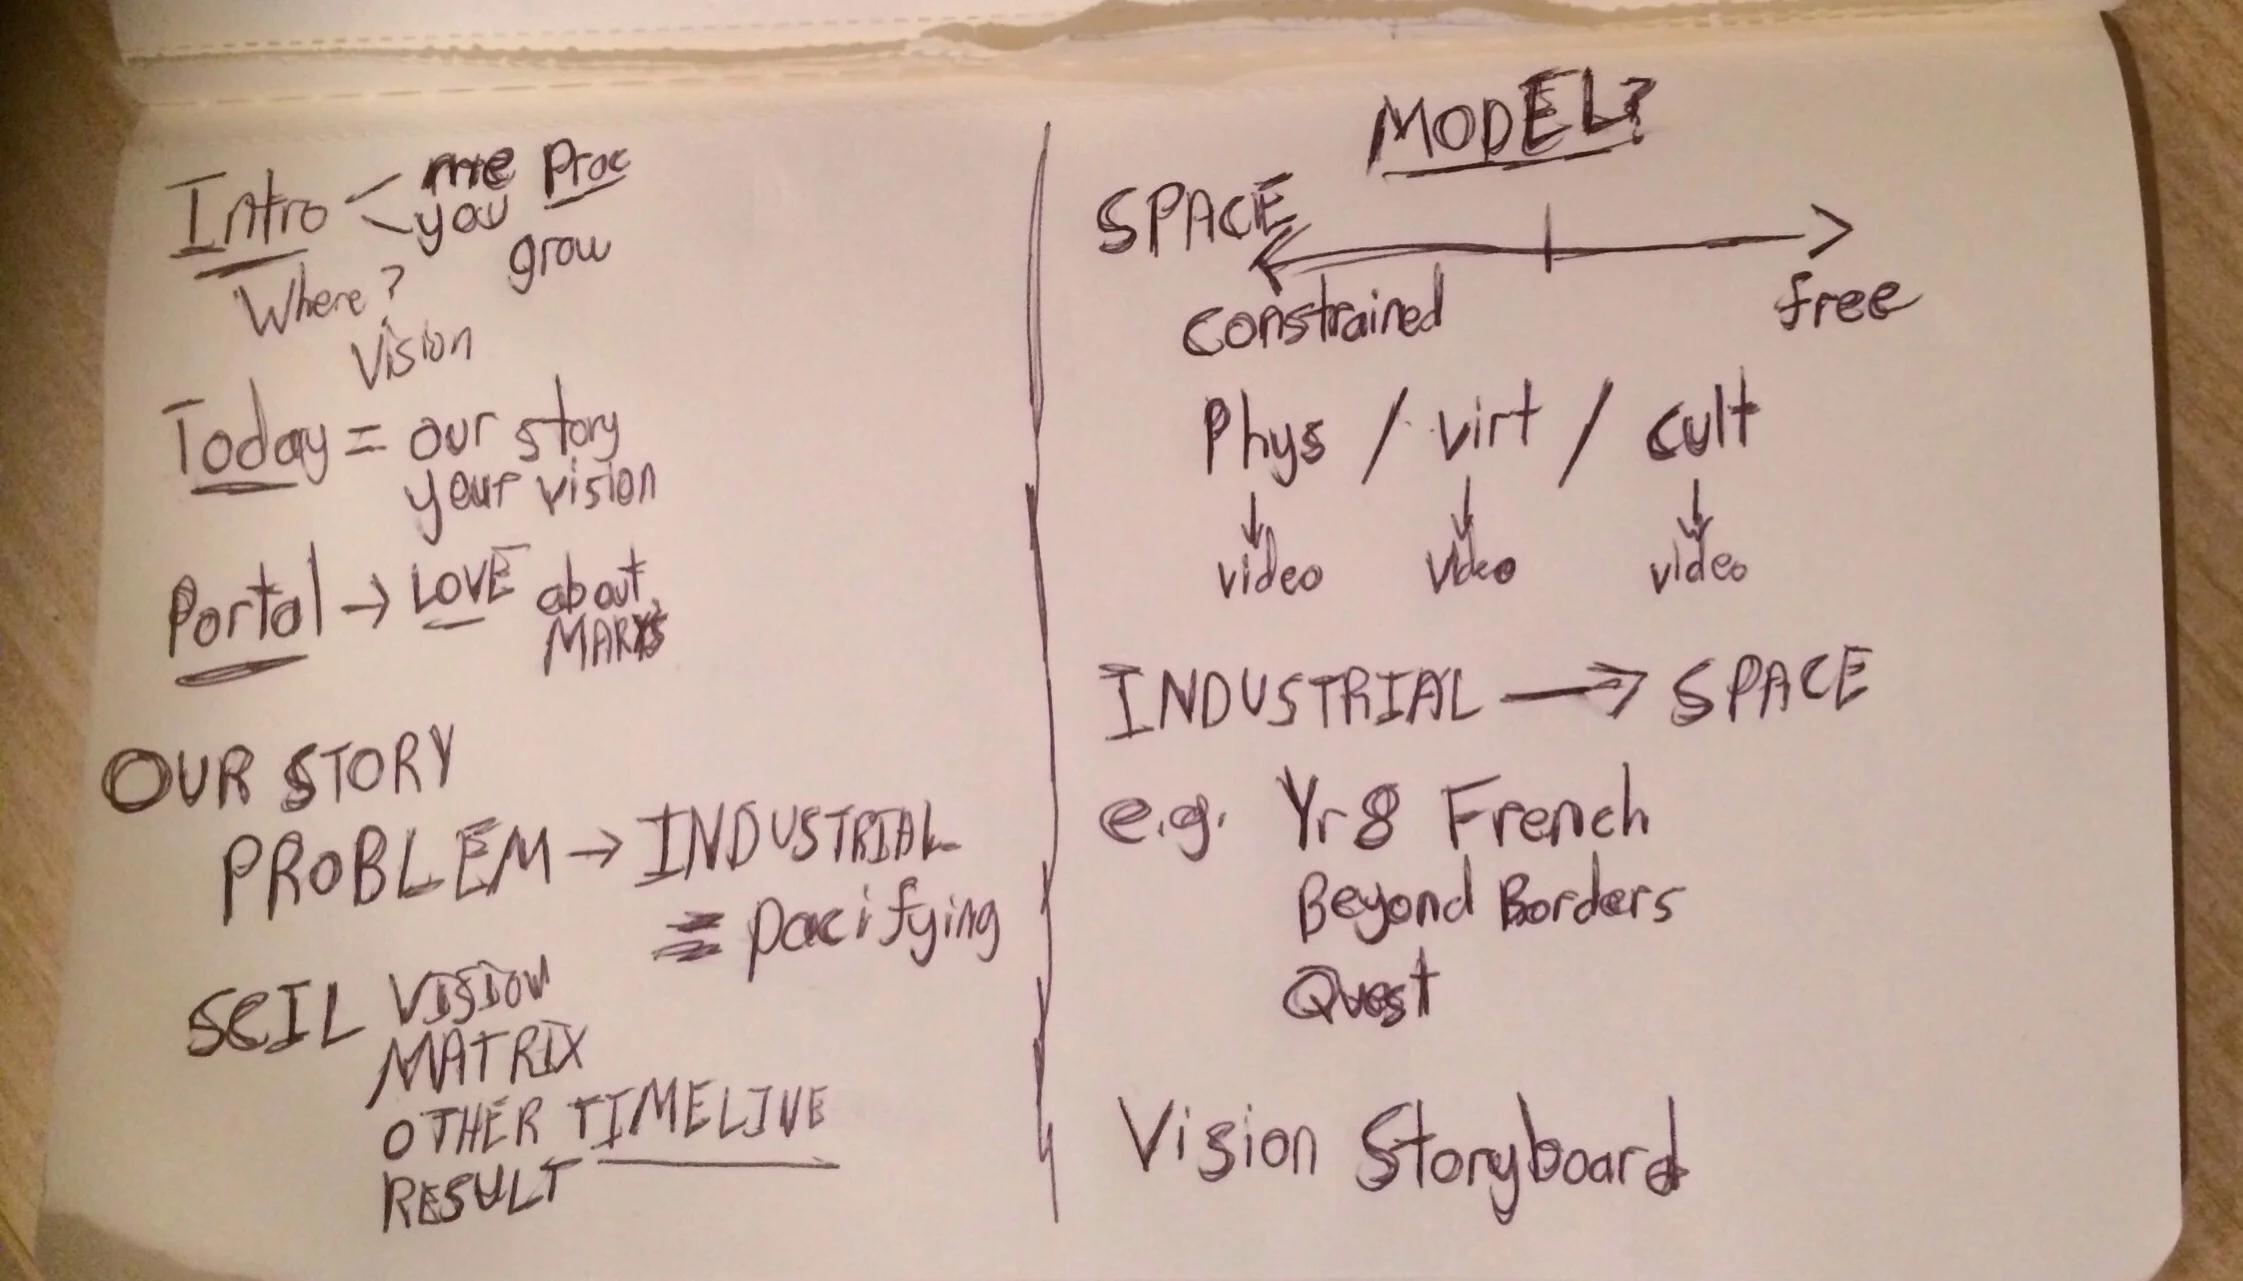 Intro < me Proc
you
grow
Where?
Vision
Today = our story
your vision
Portal → LOVE about
OUR STORY
PROBLEM → INDUSTRIAL
= pacifying
SCIL VISION
MATRIX
OTHER TIMELINE
RESULT
MODEL?
SPACE
constrained
free
Phys / virt / cult
video video video
INDUSTRIAL → SPACE
e.g. Yr 8 French
Beyond Borders
Quest
Vision Storyboard